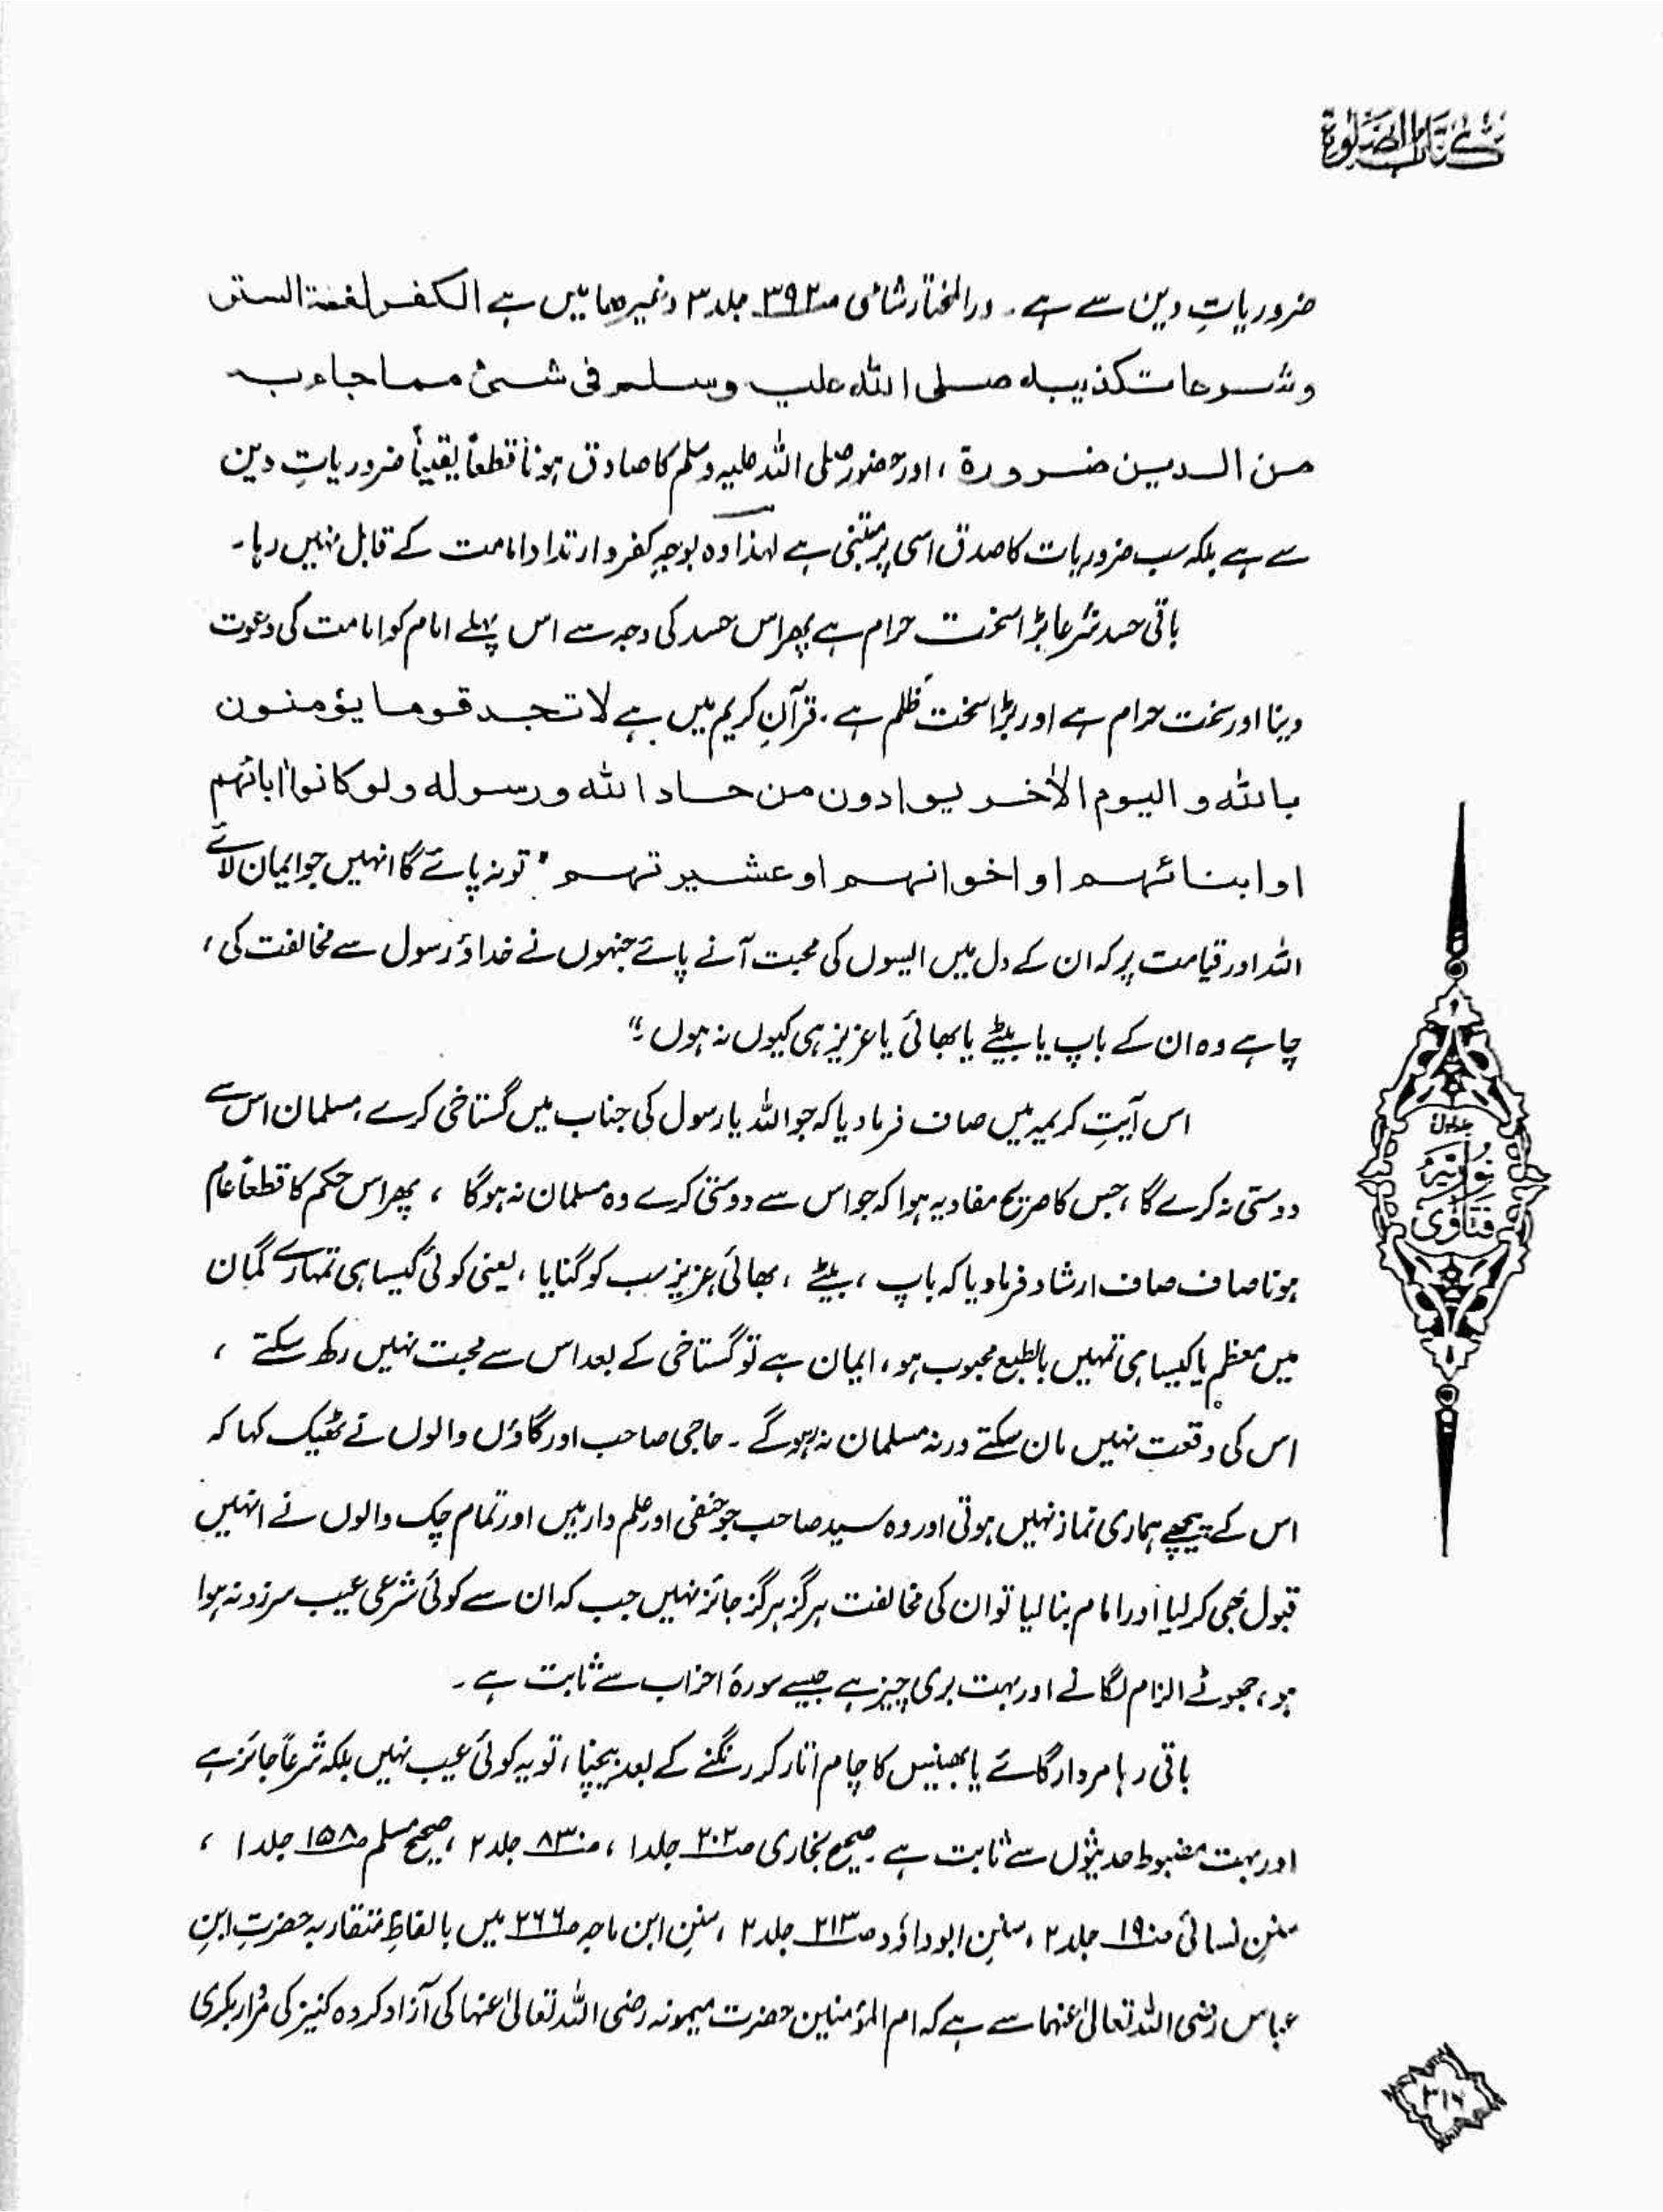 كتاب الصلوة
ضروریاتِ دین سے ہے۔ درالمختار شامی صـ۳۹۲ جلد ۳ وغیرھا میں ہے الکفر لغۃ الستر
وشرعا تکذیبہ صلی اللہ علیہ وسلم فی شئ مما جاء بہ
من الدین ضرورۃ، اور حضور صلی اللہ علیہ وسلم کا صادق ہونا قطعاً یقیناً ضروریاتِ دین
سے ہے بلکہ سب ضروریات کا صدق اسی پر مبتنی ہے لہٰذا وہ بوجہِ کفر و ارتداد امامت کے قابل نہیں رہا۔
باقی حسد شرعا بڑا سخت حرام ہے پھر اس حسد کی وجہ سے اس پہلے امام کو امامت کی دعوت
دینا اور سخت حرام ہے اور بڑا سخت ظلم ہے۔ قرآنِ کریم میں ہے لا تجد قوما یؤمنون
باللہ و الیوم الاٰخر یوادون من حاد اللہ ورسولہ ولو کانوا اٰبائہم
او ابنائہم او اخوانہم او عشیرتہم " تو نہ پائے گا انہیں جو ایمان لائے
اللہ اور قیامت پر کہ ان کے دل میں ایسوں کی محبت آنے پائے جنہوں نے خدا و رسول سے مخالفت کی،
چاہے وہ ان کے باپ یا بیٹے یا بھائی یا عزیز ہی کیوں نہ ہوں۔"
اس آیتِ کریمہ میں صاف فرما دیا کہ جو اللہ یا رسول کی جناب میں گستاخی کرے، مسلمان اس سے
دوستی نہ کرے گا، جس کا صریح مفاد یہ ہوا کہ جو اس سے دوستی کرے وہ مسلمان نہ ہوگا ، پھر اس حکم کا قطعاً عام
ہونا صاف صاف ارشاد فرما دیا کہ باپ ، بیٹے ، بھائی، عزیز سب کو گنایا ، یعنی کوئی کیسا ہی تمہارے گمان
میں معظم یا کیسا ہی تمہیں بالطبع محبوب ہو، ایمان ہے تو گستاخی کے بعد اس سے محبت نہیں رکھ سکتے ،
اس کی وقعت نہیں مان سکتے ورنہ مسلمان نہ رہو گے ۔ حاجی صاحب اور گاؤں والوں نے ٹھیک کہا کہ
اس کے پیچھے ہماری نماز نہیں ہوتی اور وہ سید صاحب جو حنفی اور علم دار ہیں اور تمام چک والوں نے انہیں
قبول بھی کر لیا اور امام بنا لیا تو ان کی مخالفت ہرگز ہرگز جائز نہیں جب کہ ان سے کوئی شرعی عیب سرزد نہ ہوا
ہو، جھوٹے الزام لگانے اور بہت بری چیز ہے جیسے سورۂ احزاب سے ثابت ہے ۔
باقی رہا مردار گائے یا بھینس کا چام اتار کر رنگنے کے بعد بیچنا ، تو یہ کوئی عیب نہیں بلکہ شرعاً جائز ہے
اور بہت مضبوط حدیثوں سے ثابت ہے ۔ صحیح بخاری صـ۲۰۲ جلد ۱ ، صـ۸۳۰ جلد ۲ ، صحیح مسلم صـ۱۵۸ جلد ۱ ،
سننِ نسائی صـ۱۹۰ جلد ۲ ، سننِ ابوداؤد صـ۲۱۳ جلد ۲ ، سننِ ابن ماجہ صـ۲۶۶ میں بالفاظِ متقاربہ حضرتِ ابنِ
عباس رضی اللہ تعالیٰ عنہما سے ہے کہ ام المؤمنین حضرت میمونہ رضی اللہ تعالیٰ عنہا کی آزاد کردہ کنیز کی مردار بکری
جلد اول
نوریہ
فتاویٰ
۳۱۶